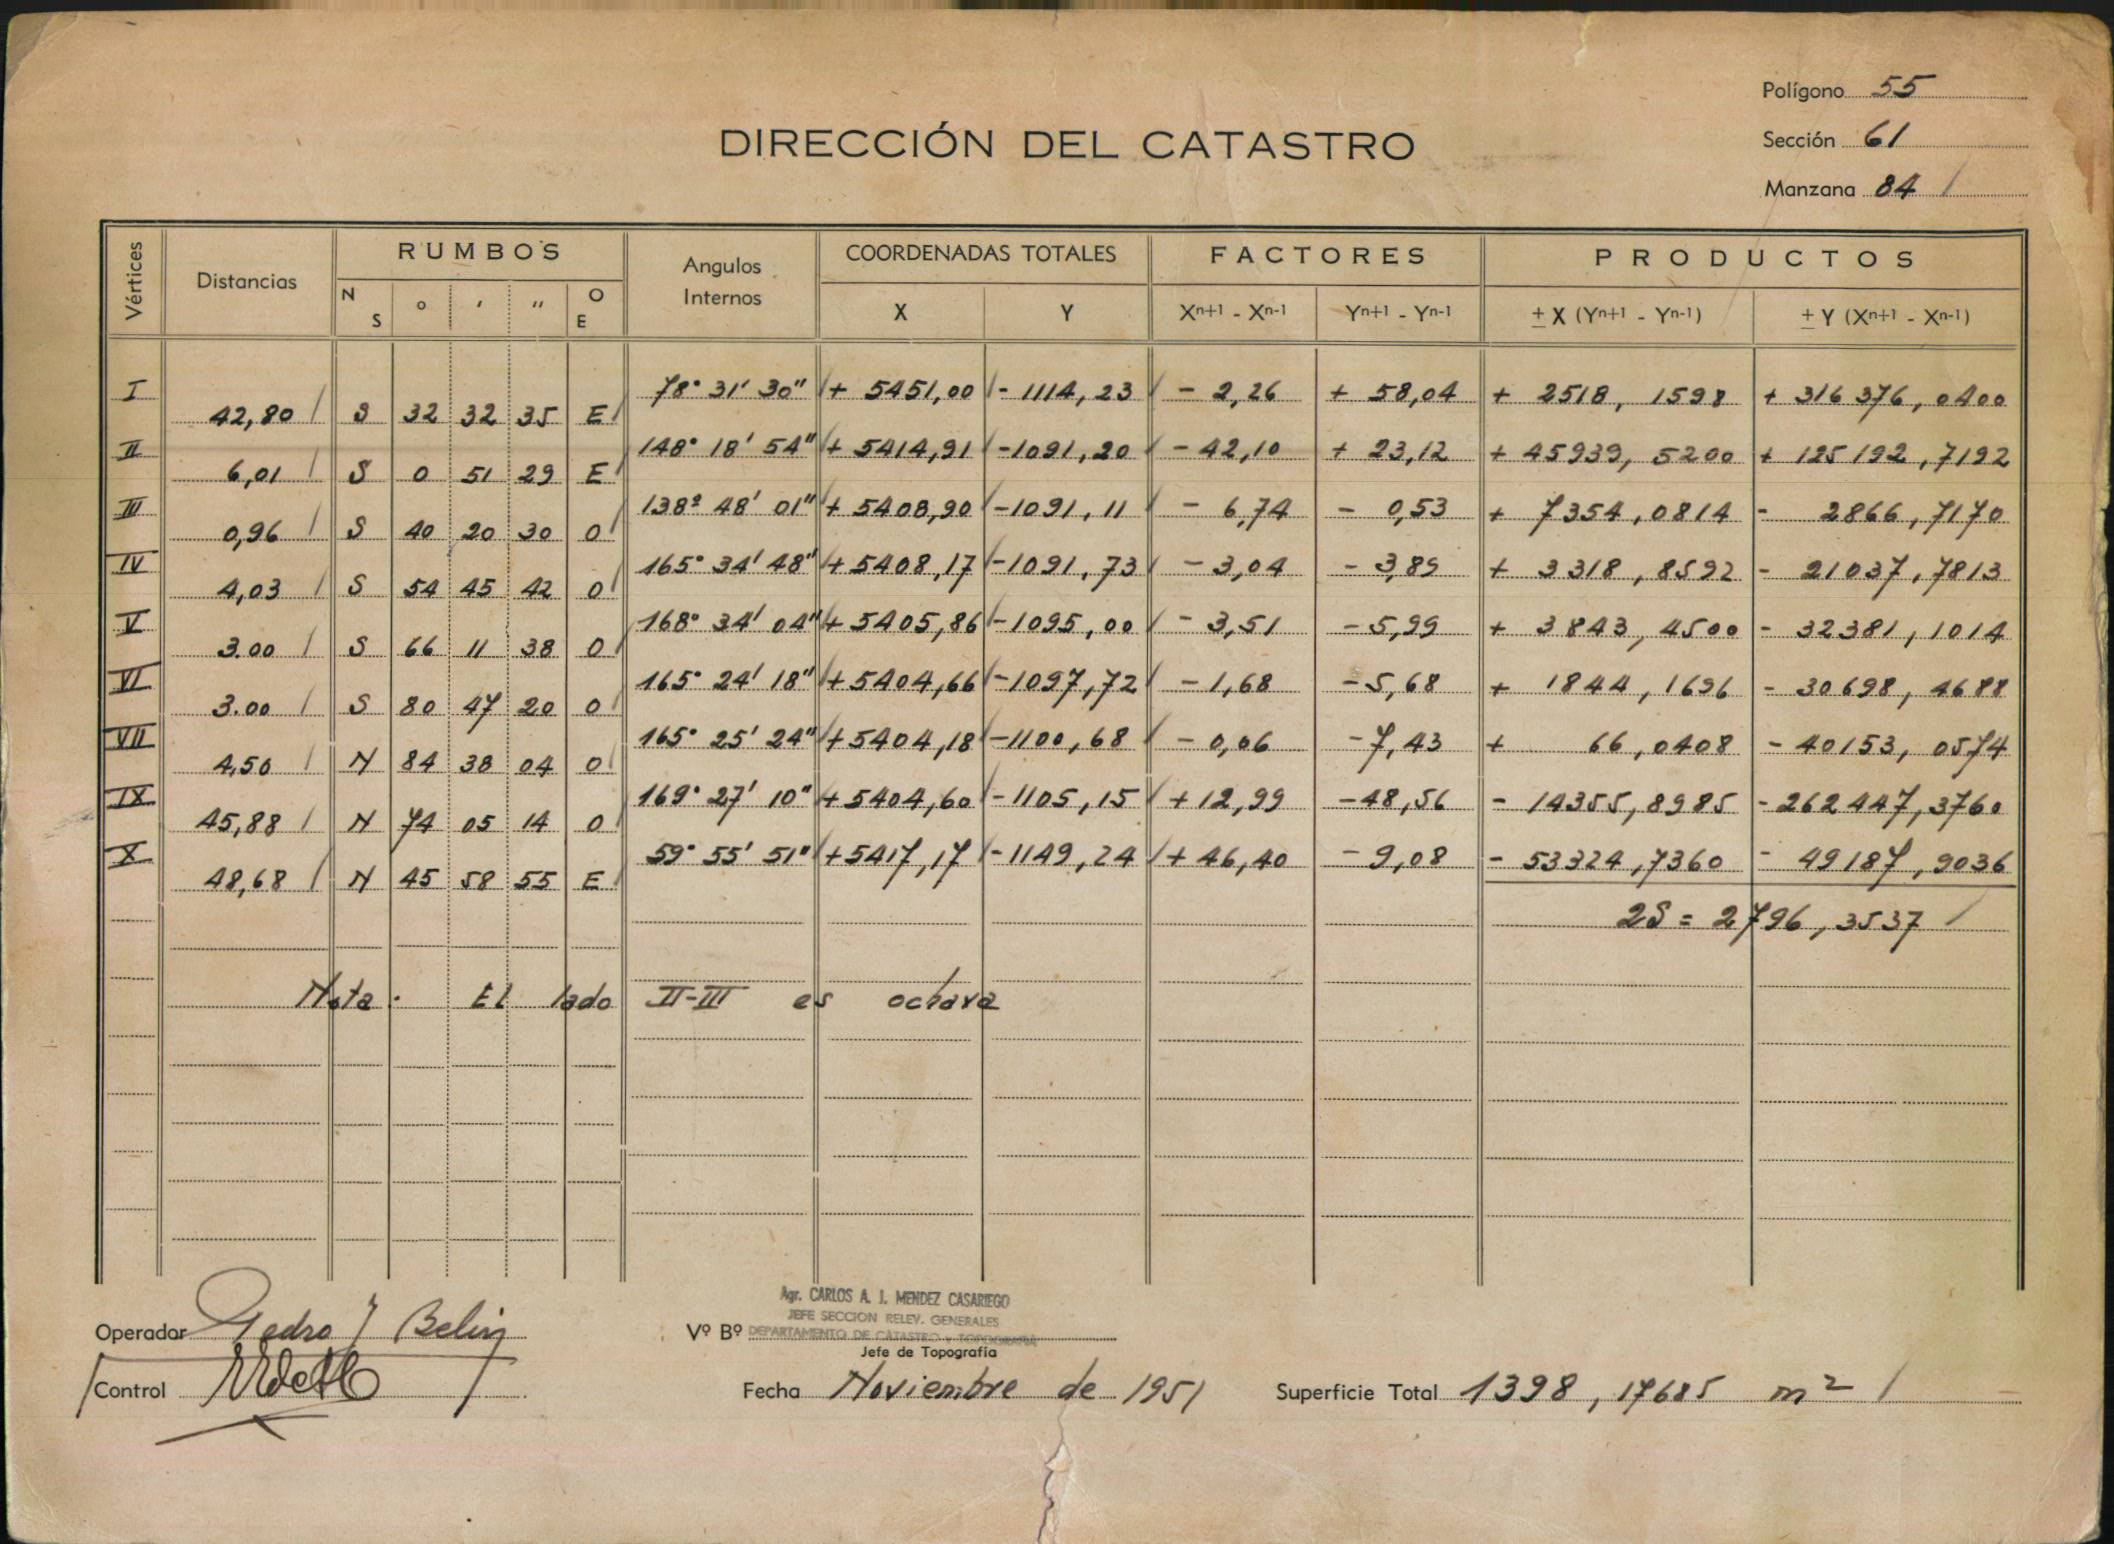 Polígono 55
DIRECCIÓN DEL CATASTRO
Sección 61
Manzana 84 /
Vértices Distancias RUMBOS Angulos Internos COORDENADAS TOTALES FACTORES PRODUCTOS
N S ° ' " O E X Y Xn+1 - Xn-1 Yn+1 - Yn-1 ± X (Yn+1 - Yn-1) ± Y (Xn+1 - Xn-1)
I 78° 31' 30" + 5451,00 - 1114,23 - 2,26 + 58,04 + 2518, 1598 + 316 376, 0400
42,80 S 32 32 35 E
II 148° 18' 54" + 5414,91 -1091,20 - 42,10 + 23,12 + 45939, 5200 + 125 192,7192
6,01 S 0 51 29 E
III 138° 48' 01" + 5408,90 -1091,11 - 6,74 - 0,53 + 7354,0814 - 2866,7170
0,96 S 40 20 30 O
IV 165° 34' 48" + 5408,17 -1091,73 - 3,04 - 3,89 + 3318,8592 - 21037,7813
4,03 S 54 45 42 O
V 168° 34' 04" + 5405,86 -1095,00 - 3,51 -5,99 + 3843,4500 - 32381,1014
3.00 S 66 11 38 O
VI 165° 24' 18" +5404,66 -1097,72 -1,68 -5,68 + 1844,1696 - 30698,4688
3.00 S 80 47 20 O
VII 165° 25' 24" +5404,18 -1100,68 - 0,06 -7,43 + 66,0408 - 40153,0574
4,50 N 84 38 04 O
IX 169° 27' 10" +5404,60 -1105,15 +12,99 -48,56 - 14355,8985 -262447,3760
45,88 N 74 05 14 O
X 59° 55' 51" +5417,17 -1149,24 + 46,40 - 9,08 - 53324,7360 - 49187,9036
48,68 N 45 58 55 E
2S = 2796,3537 /
Nota. El lado II-III es ochava
Agr. CARLOS A. J. MENDEZ CASARIEGO
JEFE SECCION RELEV. GENERALES
Operador Pedro J Belin Vº Bº DEPARTAMENTO DE CATASTRO Y TOPOGRAFIA
Jefe de Topografía
Control Fecha Noviembre de 1951 Superficie Total 1398,17685 m² /